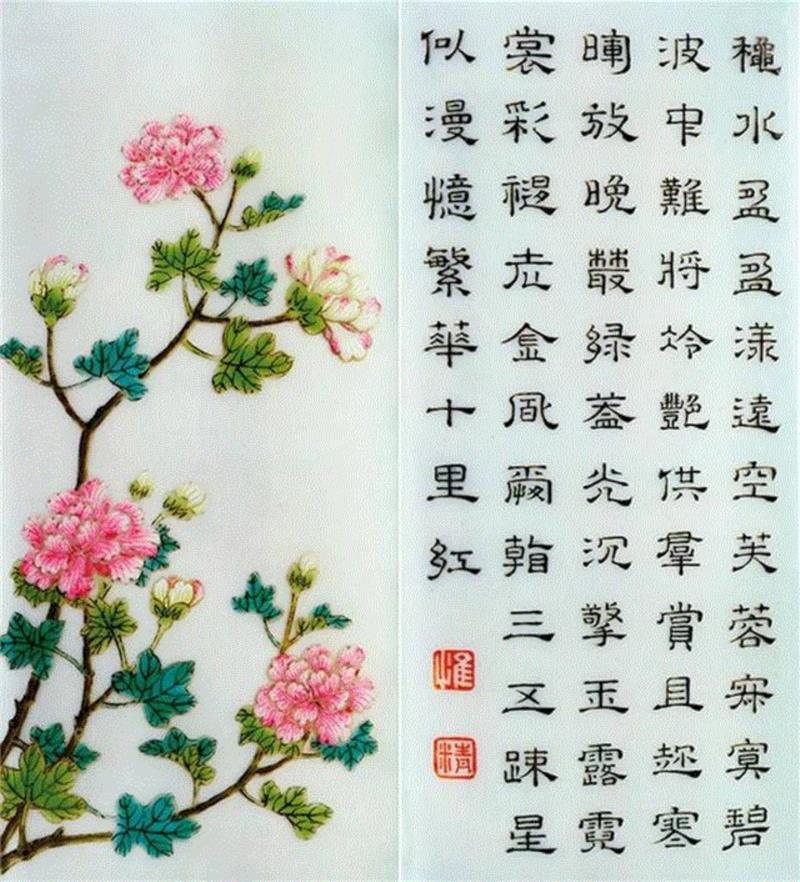 龝水盈盈漾遠空芙蓉寂寞碧
波中難將冷艷供羣賞且趂寒
暉放晚叢綠蓋光沉擎玉露霓
裳彩褪金風三五踈星
似漫憶繁華十里紅
惟
精